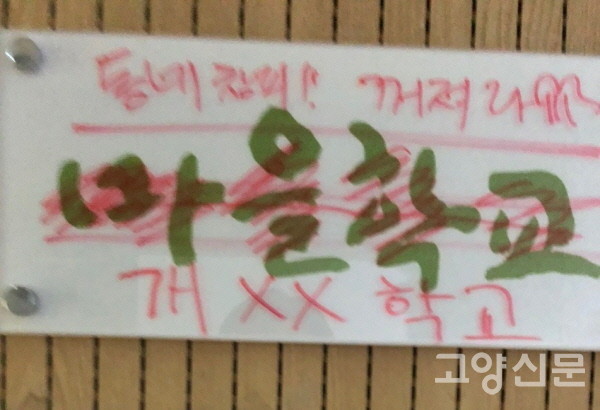 동네 창피!! 꺼져라!!!
마을학교
개 XX 학교
고양신문